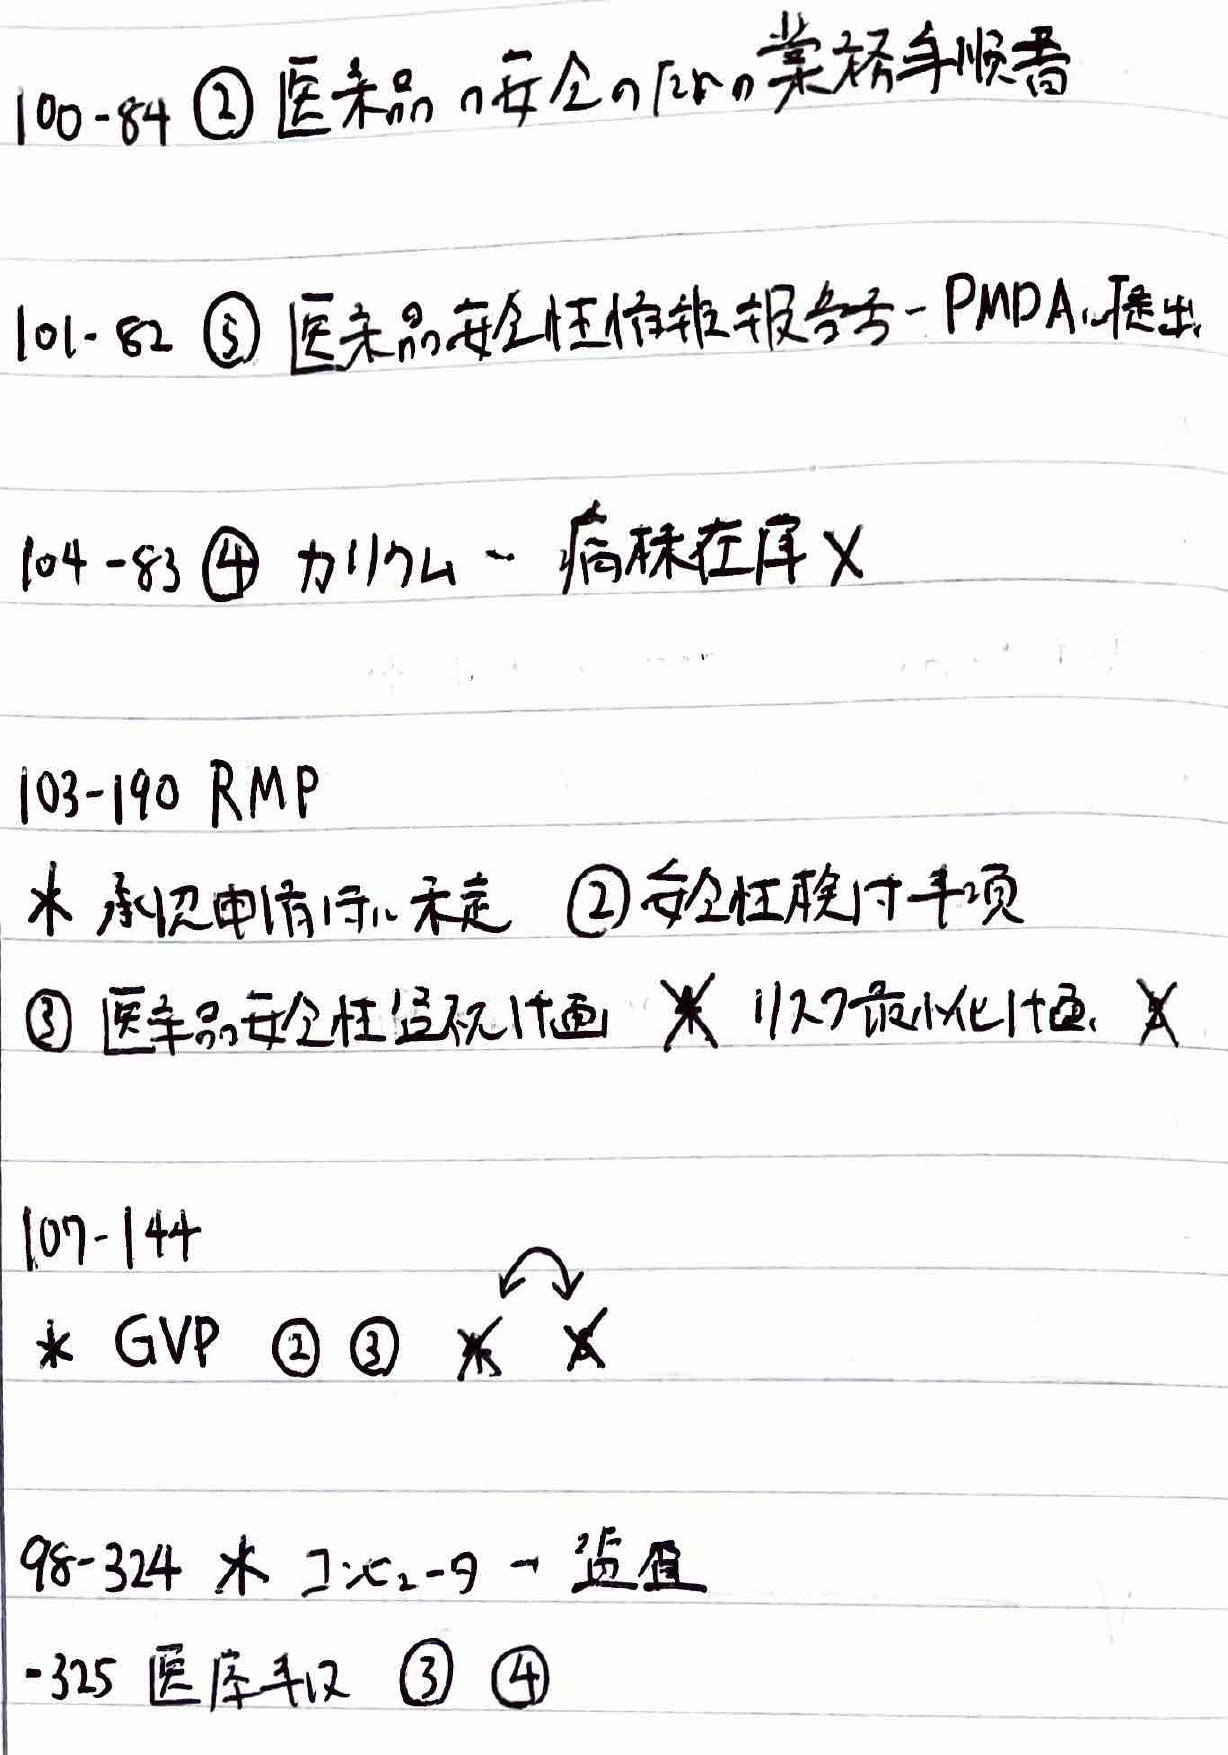 100-84 ② 医薬品の安全のための業務手順書
101-82 ⑤ 医薬品安全性情報報告書-PMDAに提出
104-83 ④ カリウム - 病棟在庫 X
103-190 RMP
* 承認申請時に策定 ② 安全性検討事項
③ 医薬品安全性監視計画 リスク最小化計画
107-144
* GVP ② ③
98-324 * コンピュータ -
-325 医 ③ ④